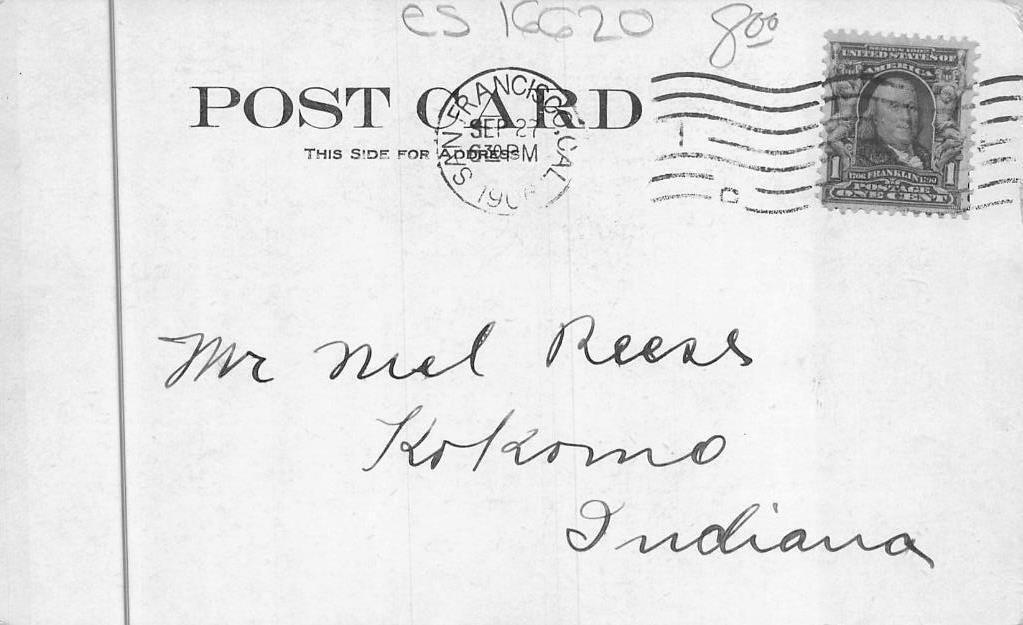 es 16620 8.00
POST CARD
THIS SIDE FOR ADDRESS
SAN FRANCISCO, CAL.
SEP 27
6 30 PM
1906
D
SERIES 1902
UNITED STATES OF
AMERICA
1 1706 FRANKLIN 1790 1
POSTAGE
ONE CENT
Mr Mel Reese
Kokomo
Indiana